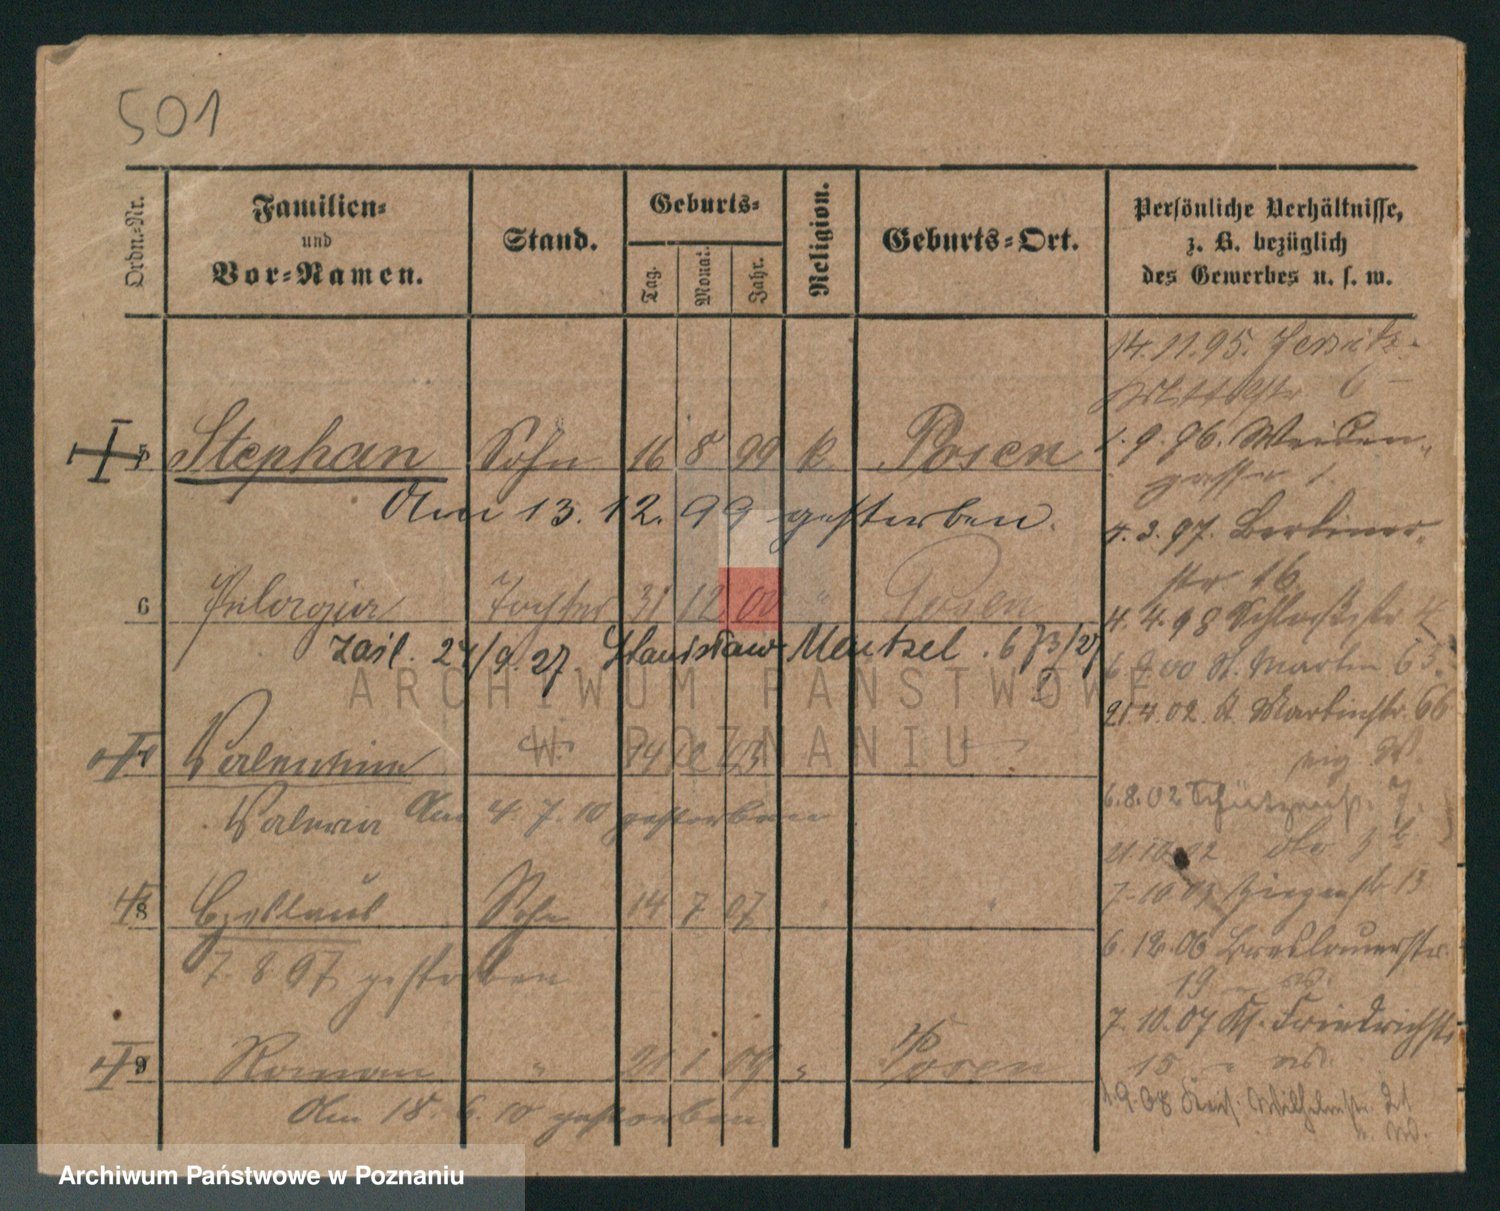 501
Ordn.-Nr.
Familien-
und
Vor-Namen.
Stand.
Geburts-
Tag.
Monat.
Jahr.
Religion.
Geburts-Ort.
Persönliche Verhältnisse,
z. B. bezüglich
des Gewerbes u. s. w.
5 Stephan Sohn 16 8 99 k. Posen
Am 13. 12. 99 gestorben.
6 Pelagia Tochter 31 12 00 " Posen
27/9. 27 Stanisław Mentzel. 673/27
7 Valentine
Valeria Am 4. 7. 10 gestorben
8 Czeslaus Sohn 14 7 07 " "
7. 8. 07 gestorben
9 Roman " 21 1 09 " Posen
Am 18. 6. 10 gestorben
14. 11. 95. Jersitz
6
1. 9. 96. Weiden-
gasse 1.
4. 3. 97. Berliner-
str 16
4. 4. 98 Schloßstr
00 St. Martin 65.
21. 4. 02. St. Martinstr. 66
6. 8. 02 Schützenstr. 7.
21. 10. 02
7. 10. 03 Ziegenstr. 13
6. 12. 06 Breslauerstr.
19
7. 10. 07 Kl. Friedrichstr.
15
1. 9. 08 Wilhelmstr. 21
ARCHIWUM PAŃSTWOWE
W POZNANIU
Archiwum Państwowe w Poznaniu